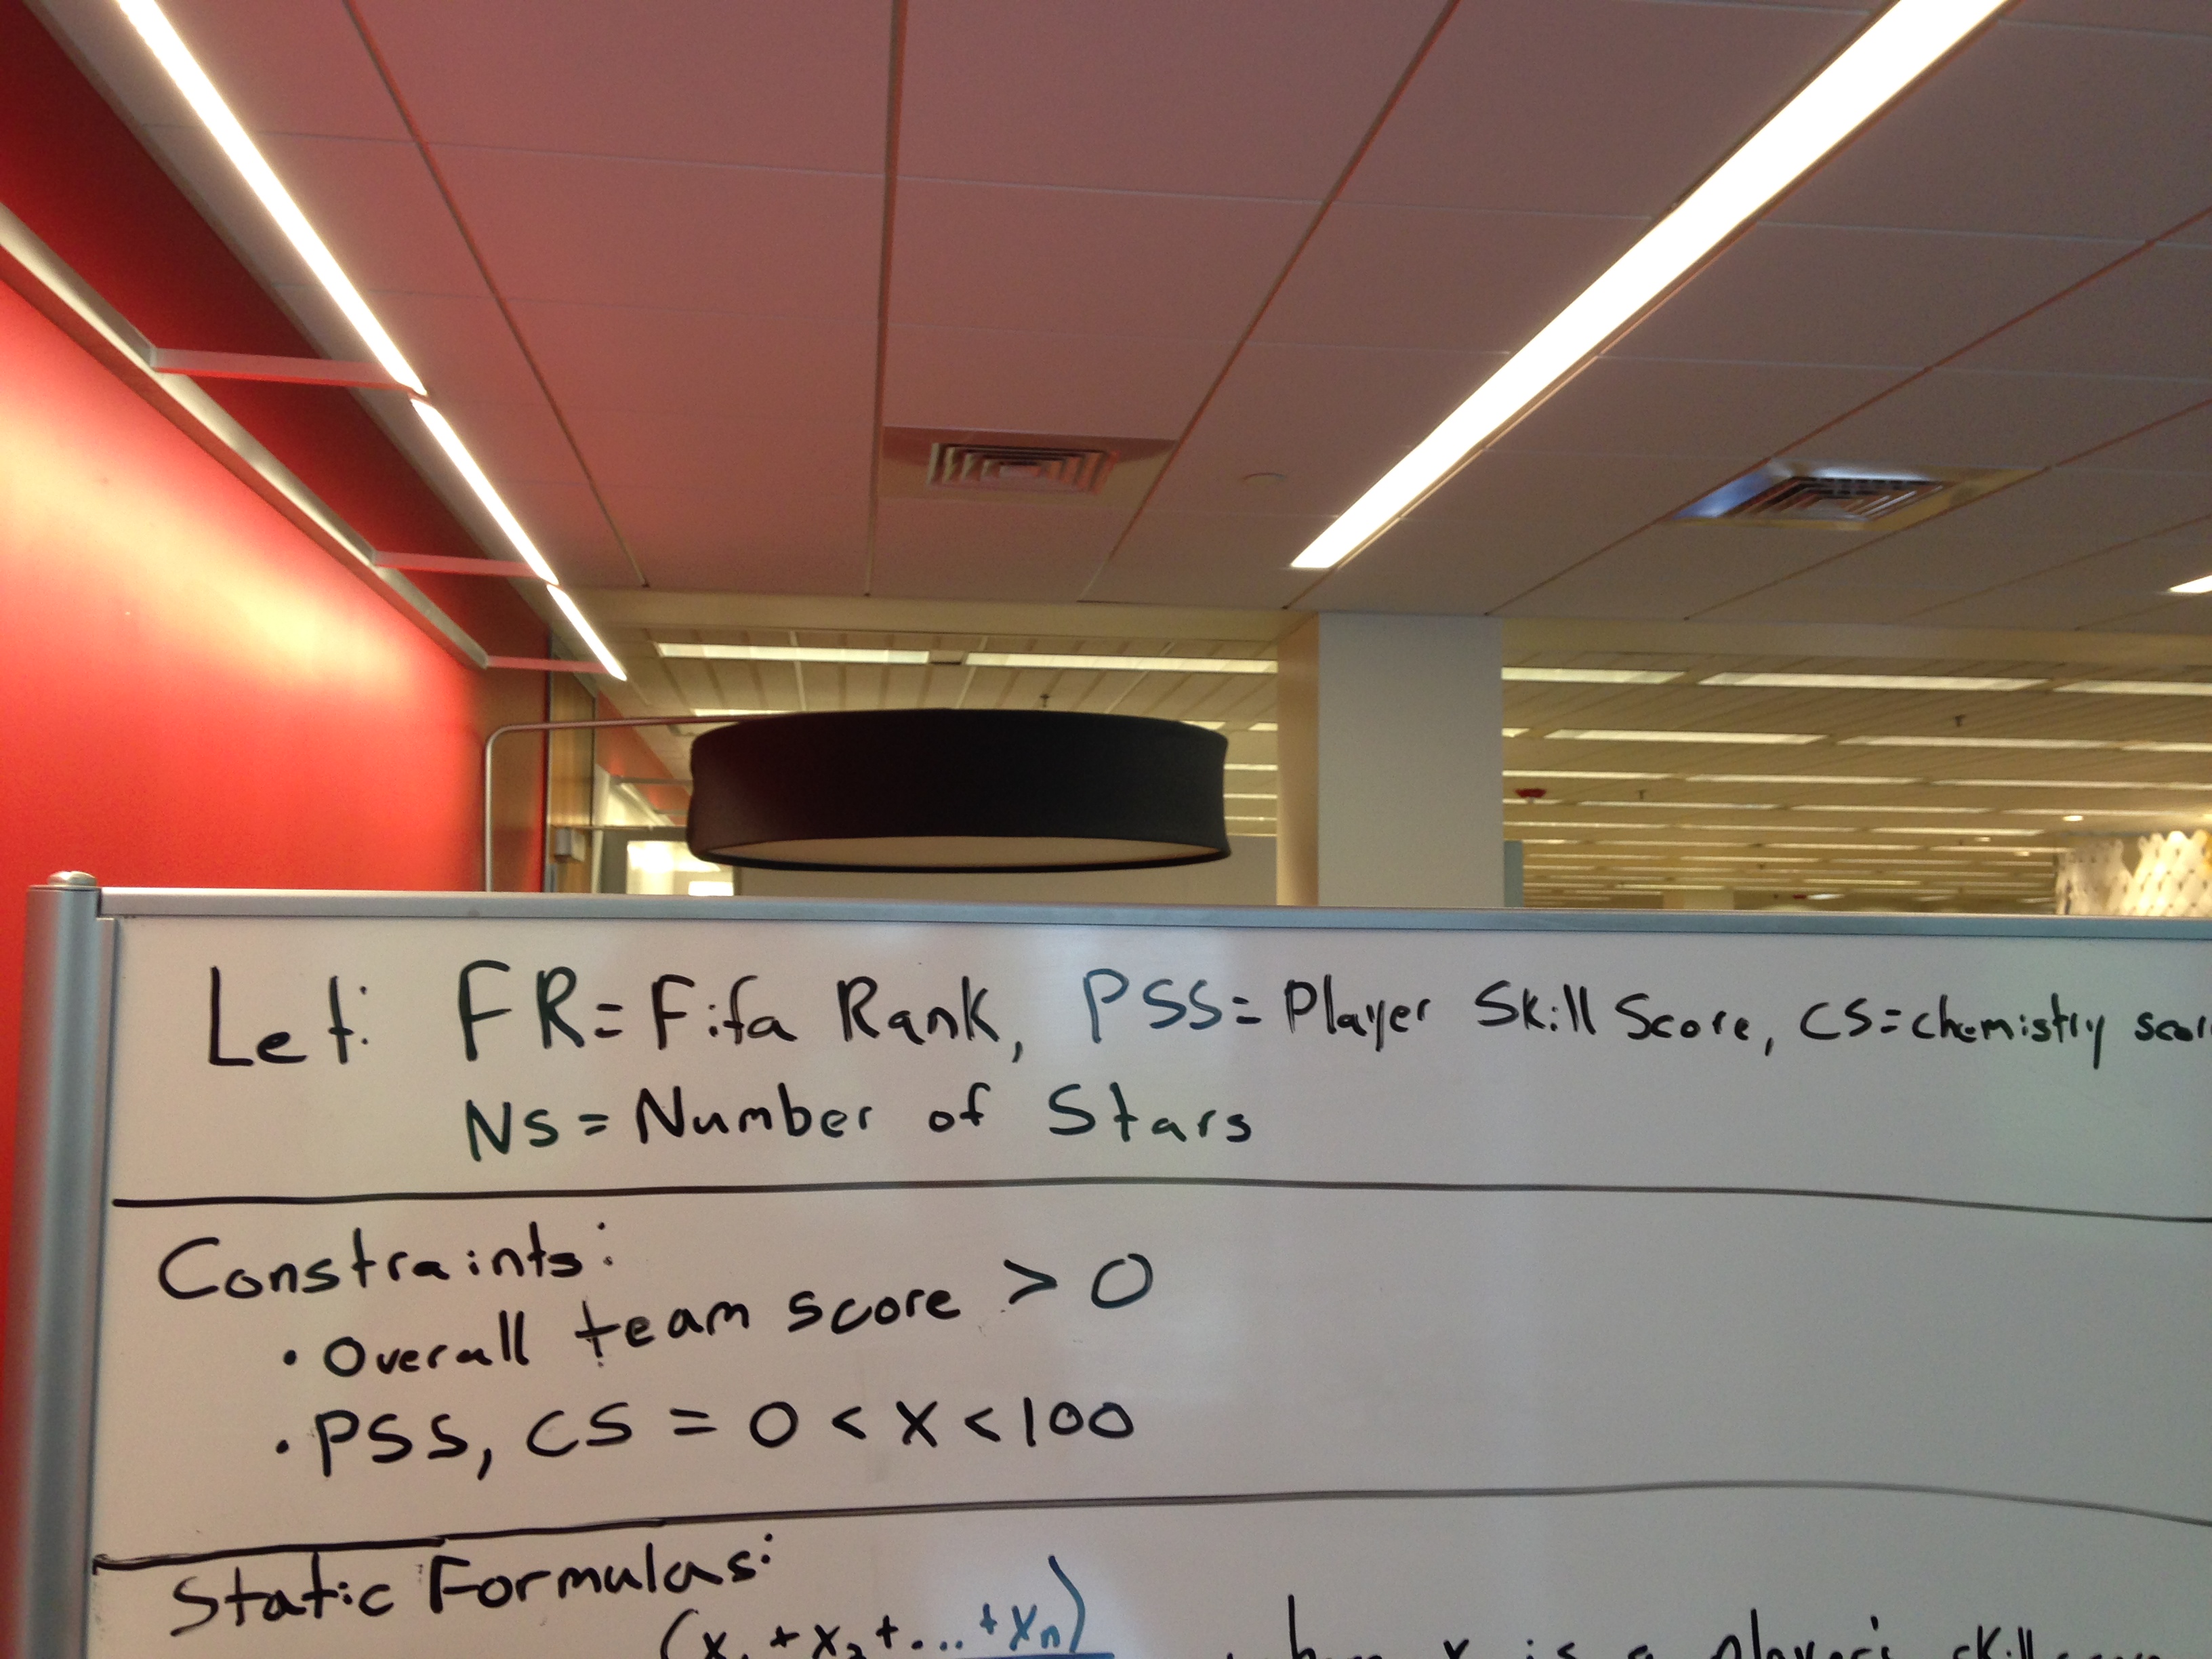 Let: FR = Fifa Rank, PSS = Player Skill Score, CS = chemistry
NS = Number of Stars
Constraints:
• Overall team score > 0
• PSS, CS = 0 < X < 100
Static Formulas:
(X₁ + X₂ + ... + Xn) x is a player's skill